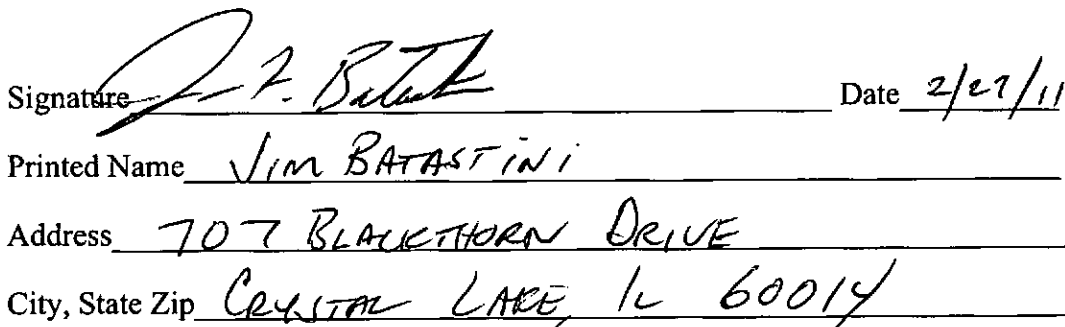 Signature J. F. Batast Date 2/27/11
Printed Name JIM BATASTINI
Address 707 BLACKTHORN DRIVE
City, State Zip CRYSTAL LAKE, IL 60014